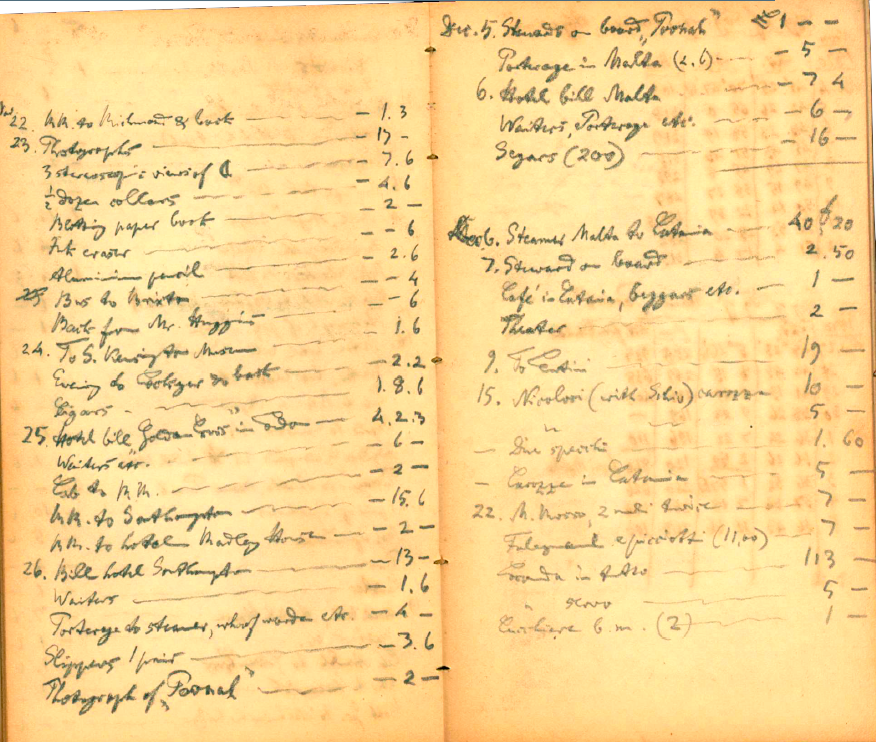 Nov 22. RR. to Richmond & back — 1.3
23. Photographs — 17 –
3 stereoscopic views of ☾ — 7.6
½ dozen collars — 4.6
Blotting paper book — 2 –
Ink eraser — – 6
Aluminium pencil — 2.6
25 Bus to Brixton — – 4
Back from Mr. Huggins — – 6
24. To S. Kensington Museum — 1.6
Evening to & back — 2.2
Cigars – 1.8.6
25. Hotel bill "Golden Cross" in — 4.2.3
Waiters etc. — 6 –
Cab to RR. — 2 –
RR. to Southampton — 15.6
RR. to hotel Radley House — 2 –
26. Bill hotel Southampton — 13 –
Waiters — 1.6
Porterage to steamer, wharf warden etc. — 4 –
Slippers 1 pair — 3.6
Photograph of "Poonah" — 2 –
Dec. 5. Stewards on board "Poonah" 1 – –
Porterage in Malta (2.6) — – 5 –
6. Hotel bill Malta – 7 4
Waiters, Porterage etc. – 6 –
Segars (200) — – 16 –
Dec 6. Steamer Malta to Catania — 40 f 20
7. Steward on board 2.50
Café in Catania, beggars etc. — 1 –
Theater — 2 –
9. To — 19 –
15. Nicolosi (with Schio) carozza 10 –
" 5 –
– Due specchi 1.60
– Carozze in Catania 5 –
22. M. Rosso, 2 muli twice 7 –
e picciotti (11,00) — 7 –
in tutto — 113 –
" — 5 –
b.m. (2) — 1 –